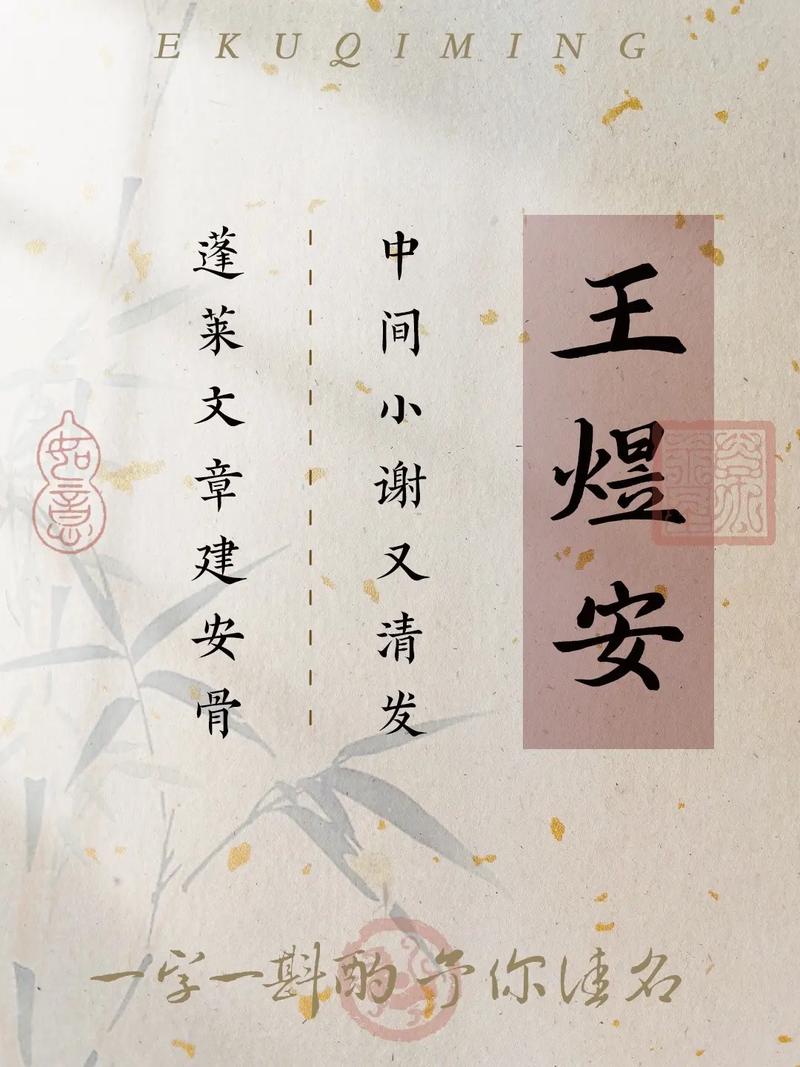 EKUQIMING
王煜安
中间小谢又清发
蓬莱文章建安骨
如意
一字一斟酌 予你佳名